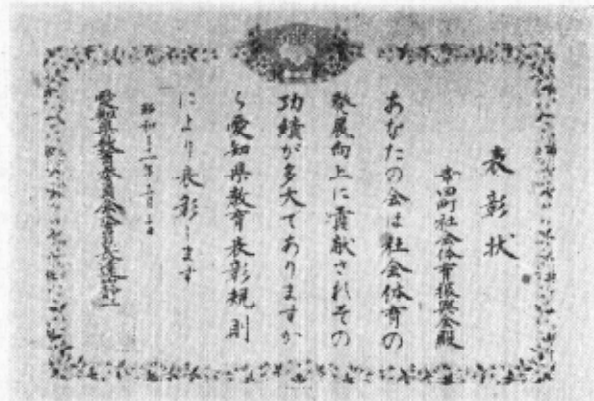 表彰状
幸田町社会体育振興会殿
あなたの会は社会体育の
発展向上に貢献されその
功績が多大でありますか
ら愛知県教育表彰規則
により表彰します
昭和
愛知県教育委員会